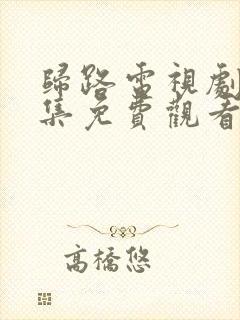 歸路電視劇
集免費觀看
高橋悠